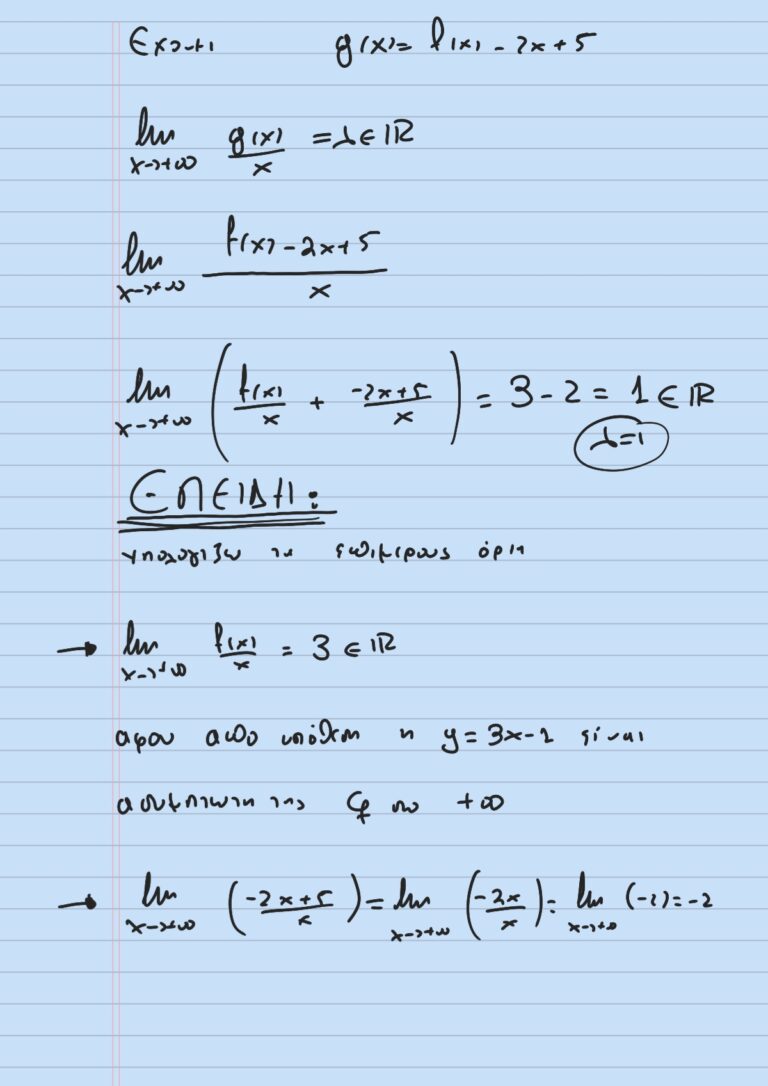 Εχουμε g(x) = f(x) - 2x + 5
lim x→+∞ g(x)/x = λ ∈ ℝ
lim x→+∞ (f(x) - 2x + 5)/x
lim x→+∞ ( f(x)/x + (-2x+5)/x ) = 3 - 2 = 1 ∈ ℝ
λ=1
ΕΠΕΙΔΗ:
υπολογιζω τα επιμερους όρια
→ lim x→+∞ f(x)/x = 3 ∈ ℝ
αφου απο υπόθεση η y = 3x - 1 είναι
ασυμπτωτη της Cf στο +∞
→ lim x→+∞ ( (-2x+5)/x ) = lim x→+∞ ( -2x/x ) = lim x→+∞ (-2) = -2